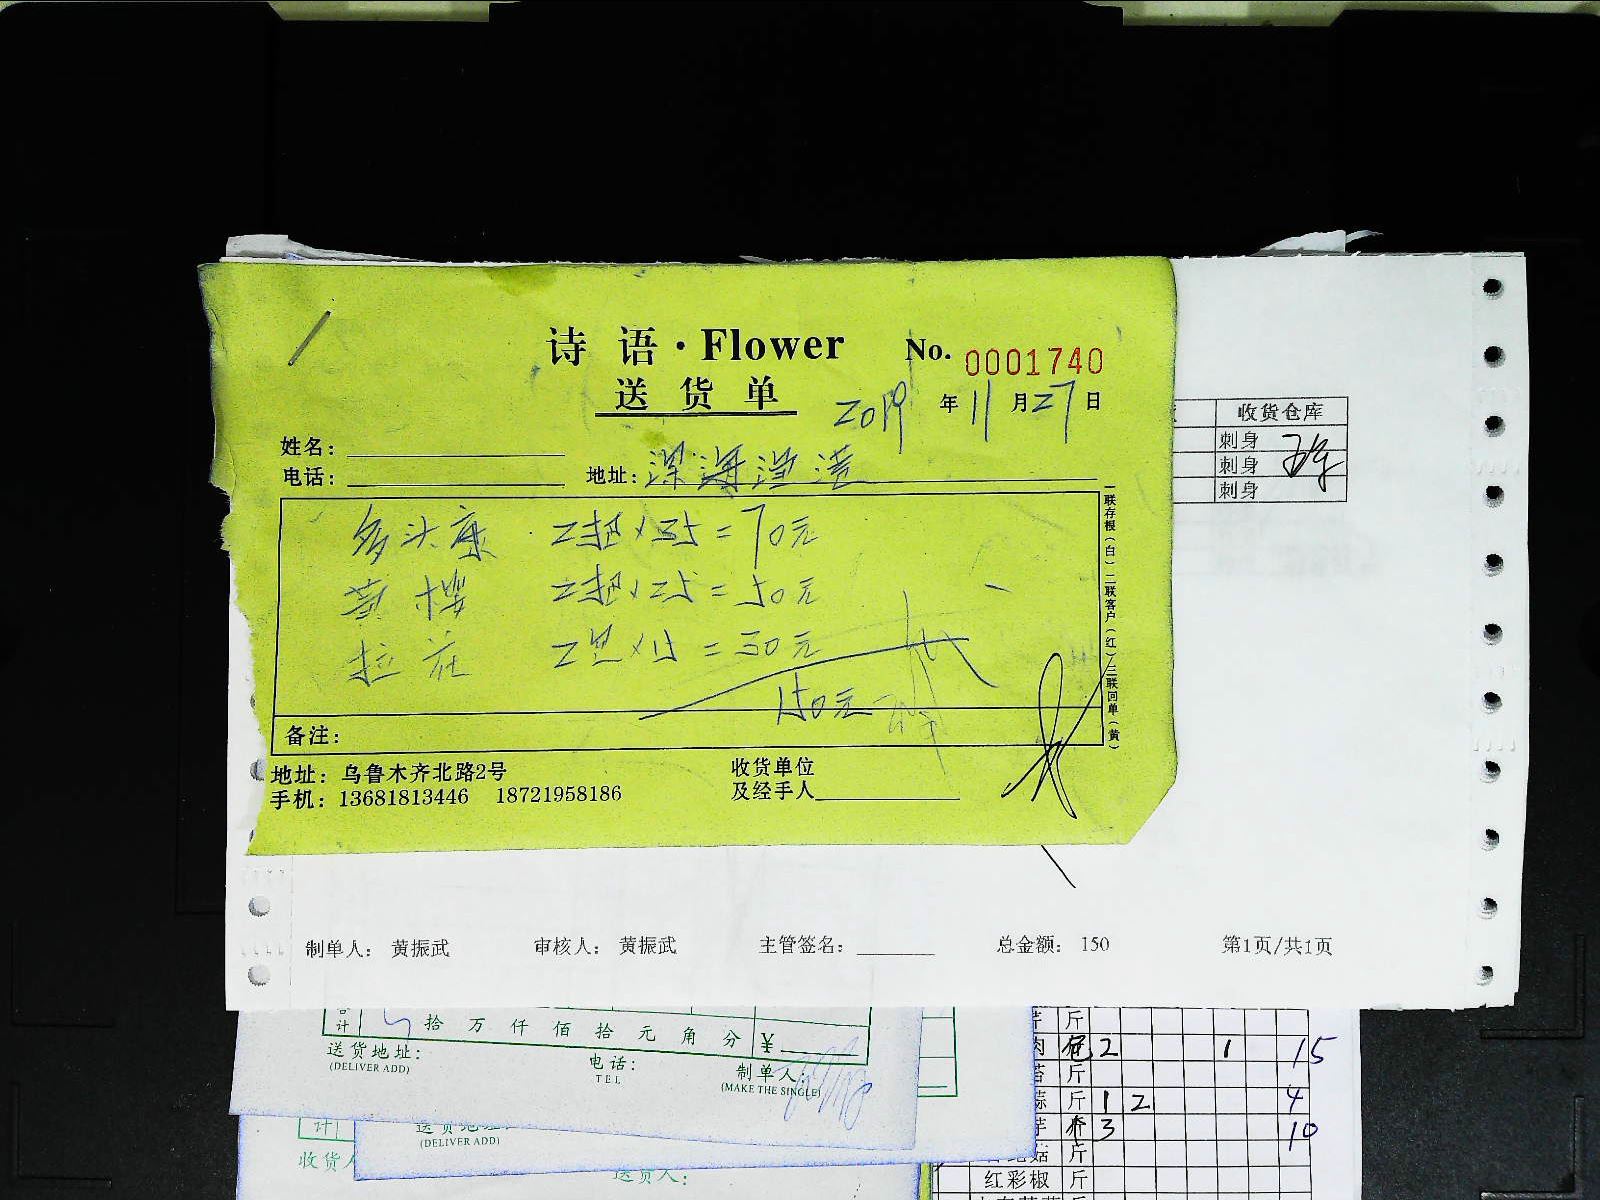 诗 语 · Flower
No. 0001740
送 货 单
2019 年 11 月 27 日
姓名：
电话：
地址：深海渔港
多头康 2把×35=70元
黄樱 2把×25=50元
拉花 2×15=30元
150元
备注：
一联存根（白）二联客户（红）三联回单（黄）
地址：乌鲁木齐北路2号
手机：13681813446 18721958186
收货单位
及经手人
收货仓库
刺身
刺身
刺身
制单人： 黄振武 审核人： 黄振武 主管签名： 总金额： 150 第1页/共1页
计 拾 万 仟 佰 拾 元 角 分 ¥
送货地址：
(DELIVER ADD)
电话：
TEL
制单人：
(MAKE THE SINGLE)
计
(DELIVER ADD)
收货
送货人：
斤
肉 2 1 15
斤
斤 1 2 4
3 10
菇 斤
红彩椒 斤